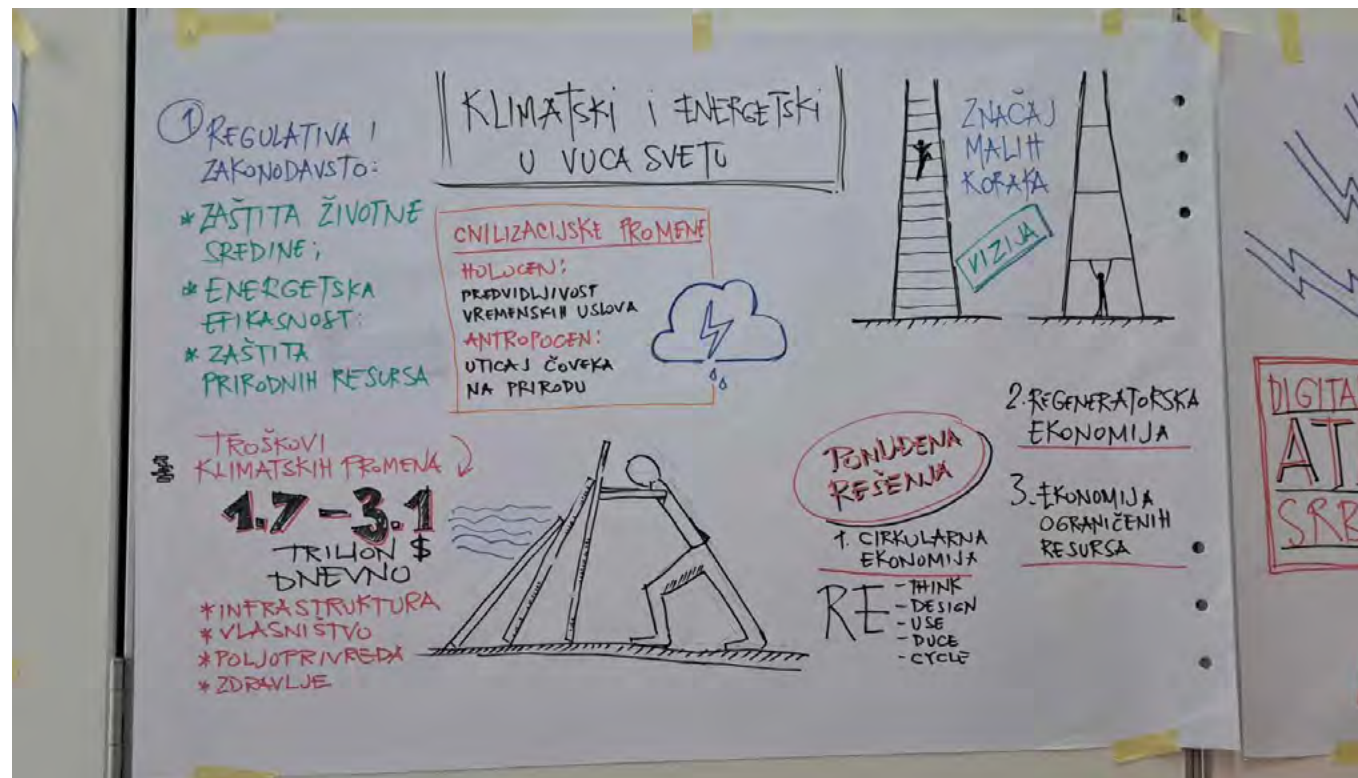 KLIMATSKI I ENERGETSKI
U VUCA SVETU
1 REGULATIVA I
ZAKONODAVSTO:
* ZAŠTITA ŽIVOTNE
SREDINE;
* ENERGETSKA
EFIKASNOST:
* ZAŠTITA
PRIRODNIH RESURSA
CNILIZACIJSKE PROMENE
HOLOCEN:
PREDVIDLJIVOST
VREMENSKIH USLOVA
ANTROPOCEN:
UTICAJ ČOVEKA
NA PRIRODU
ZNAČAJ
MALIH
KORAKA
VIZIJA
TROŠKOVI
KLIMATSKIH PROMENA
1.7 – 3.1
TRILION $
DNEVNO
* INFRASTRUKTURA
* VLASNIŠTVO
* POLJOPRIVREDA
* ZDRAVLJE
PONUĐENA
REŠENJA
1. CIRKULARNA
EKONOMIJA
RE
- THINK
- DESIGN
- USE
- DUCE
- CYCLE
2. REGENERATORSKA
EKONOMIJA
3. EKONOMIJA
OGRANIČENIH
RESURSA
DIGITA
AT
SRB